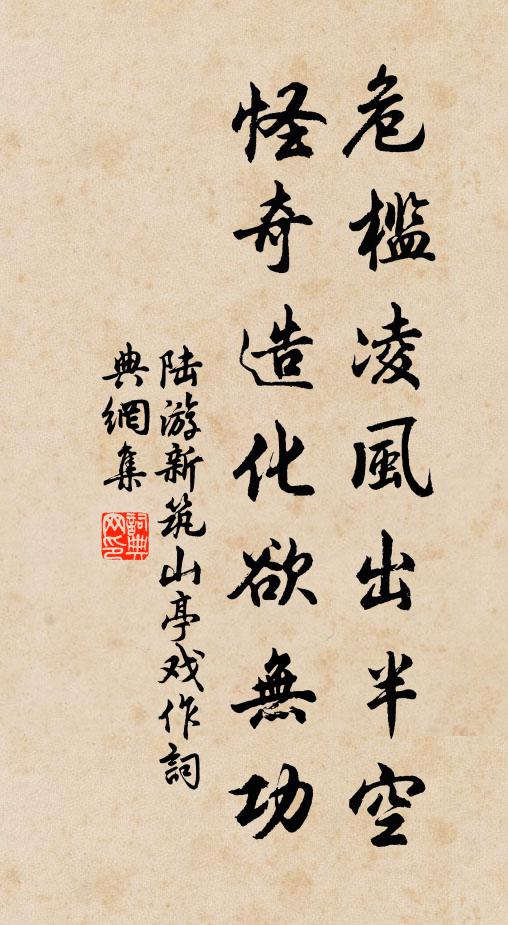 危槛凌風出半空
怪奇造化欲無功
陆游新筑山亭戏作詞
典網集
詞典网印